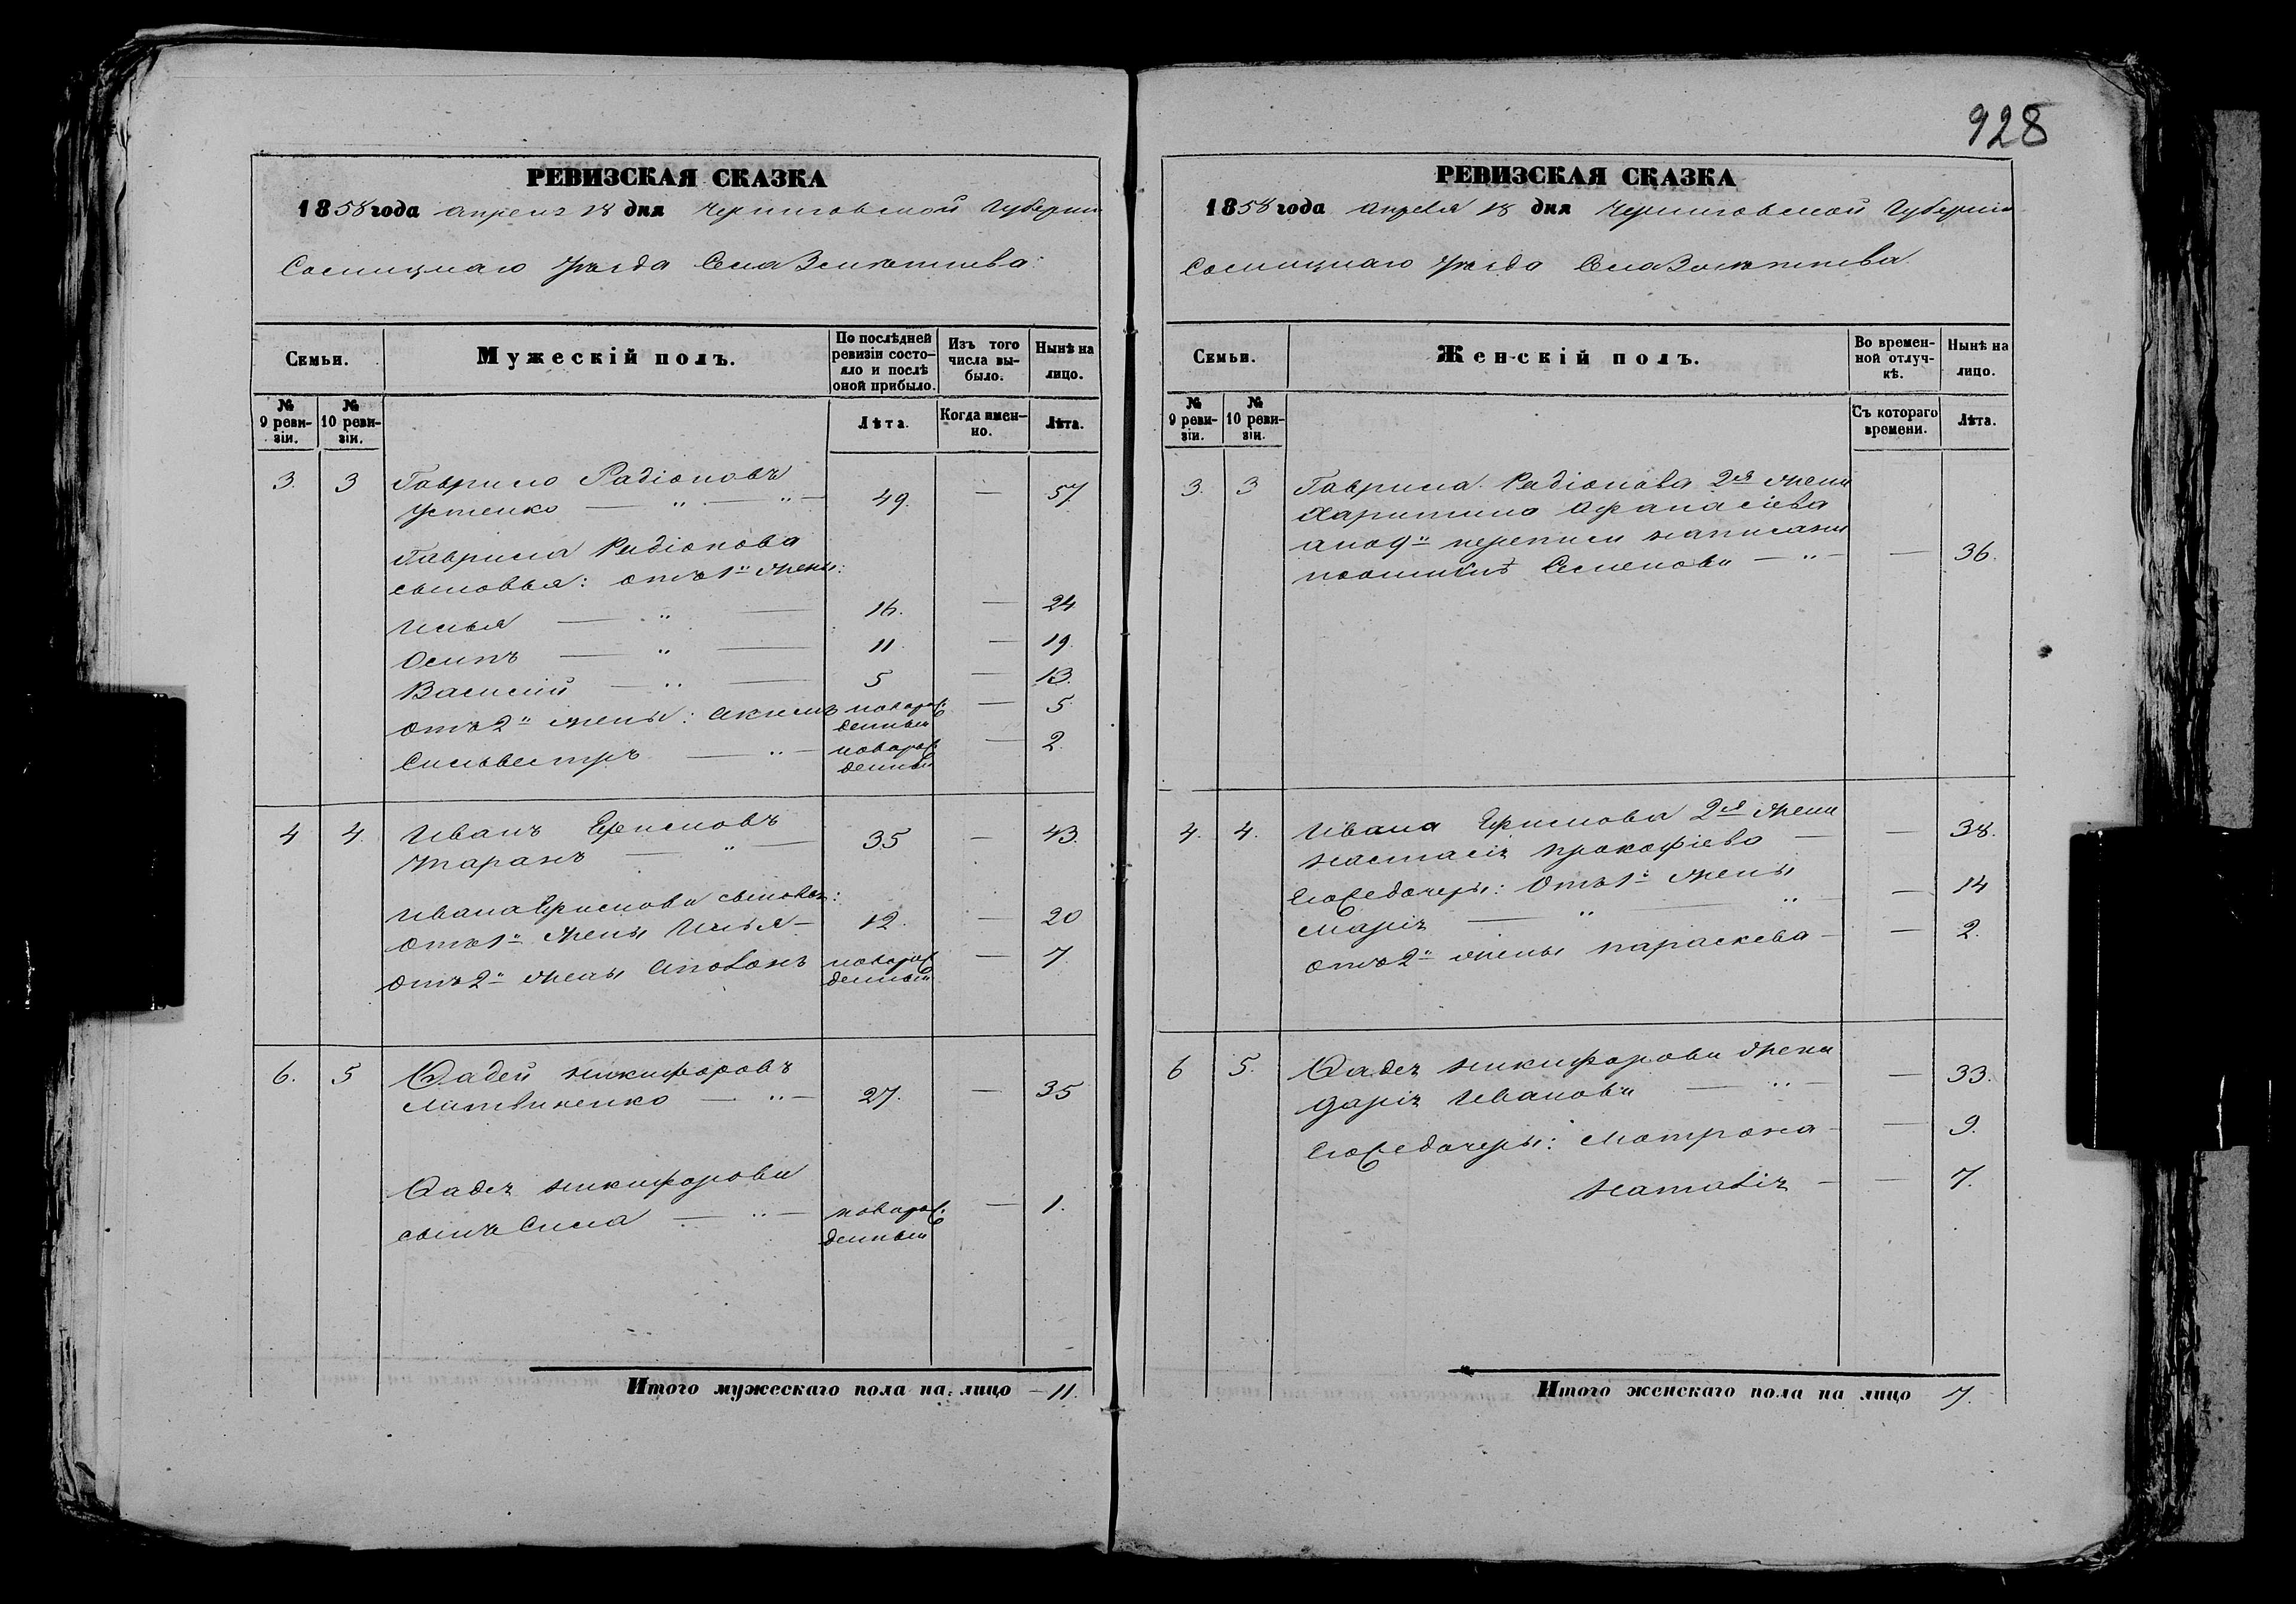 928
РЕВИЗСКАЯ СКАЗКА
1858 года апреля 18 дня Черниговской Губернии
Сосницкаго Уезда Села
Семьи.
Мужескій полъ.
По послѣдней ревизіи состо-яло и послѣ оной прибыло.
Изъ того числа вы-было.
Нынѣ на лицо.
№ 9 реви-зіи.
№ 10 реви-зіи.
Лѣта.
Когда имен-но.
Лѣта.
3. 3 Гаврило Радіоновъ
Устенко — " — " — 49. — 57
Гаврила Радіонова
сыновья: отъ 1й жены:
Илья — " — 16. — 24
Осипъ — " — 11. — 19.
Василий — " — 5 — 13.
отъ 2й жены: Акимъ новорож: — 5
денный
Сильвестръ — " — новорож — 2.
денный
4 4. Иванъ Ефимовъ
Таранъ — " — 35 — 43.
Ивана Ефимова сыновья:
отъ 1й жены Илья — 12. — 20
отъ 2й жены Антонъ новорож — 7
денный
6. 5 Фадей Никифоровъ
Литвиненко — " — 27. — 35
Фадея Никифорова
сынъ Сила — " — новорож: — 1.
денный
Итого мужескаго пола на лицо — 11.
РЕВИЗСКАЯ СКАЗКА
1858 года Апреля 18 дня Черниговской Губернии
Сосницкаго Уезда Села
Семьи.
Женскій полъ.
Во времен-ной отлуч-кѣ.
Нынѣ на лицо.
№ 9 реви-зіи.
№ 10 реви-зіи.
Съ котораго времени.
Лѣта.
3. 3 Гаврила Радіонова 2я жена
Харитина Афанасіева
а по 9й переписи написана
Семенова — " — — 36.
4. 4. Ивана Ефимова 2я жена — 38.
Настасія Прокофіева —
его же дочери: Отъ 1й жены — 14
Марія — " — " —
отъ 2й жены Параскева — — 2.
6 5. Фадея Никифорова жена — 33.
Дарія Иванова — " —
его же дочери: Мотрона — — 9.
Наталія — — 7.
Итого женскаго пола на лицо 7.